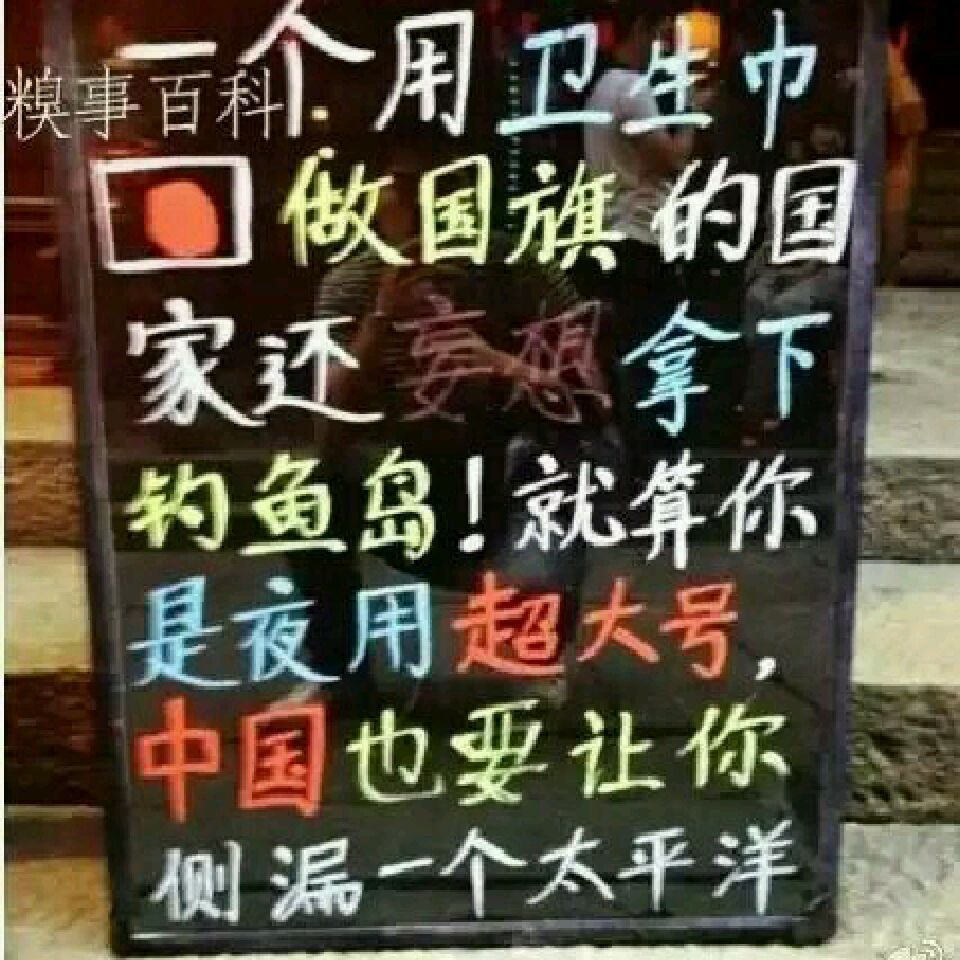 一个用卫生巾
糗事百科
做国旗的国
家还妄想拿下
钓鱼岛！就算你
是夜用超大号，
中国也要让你
侧漏一个太平洋